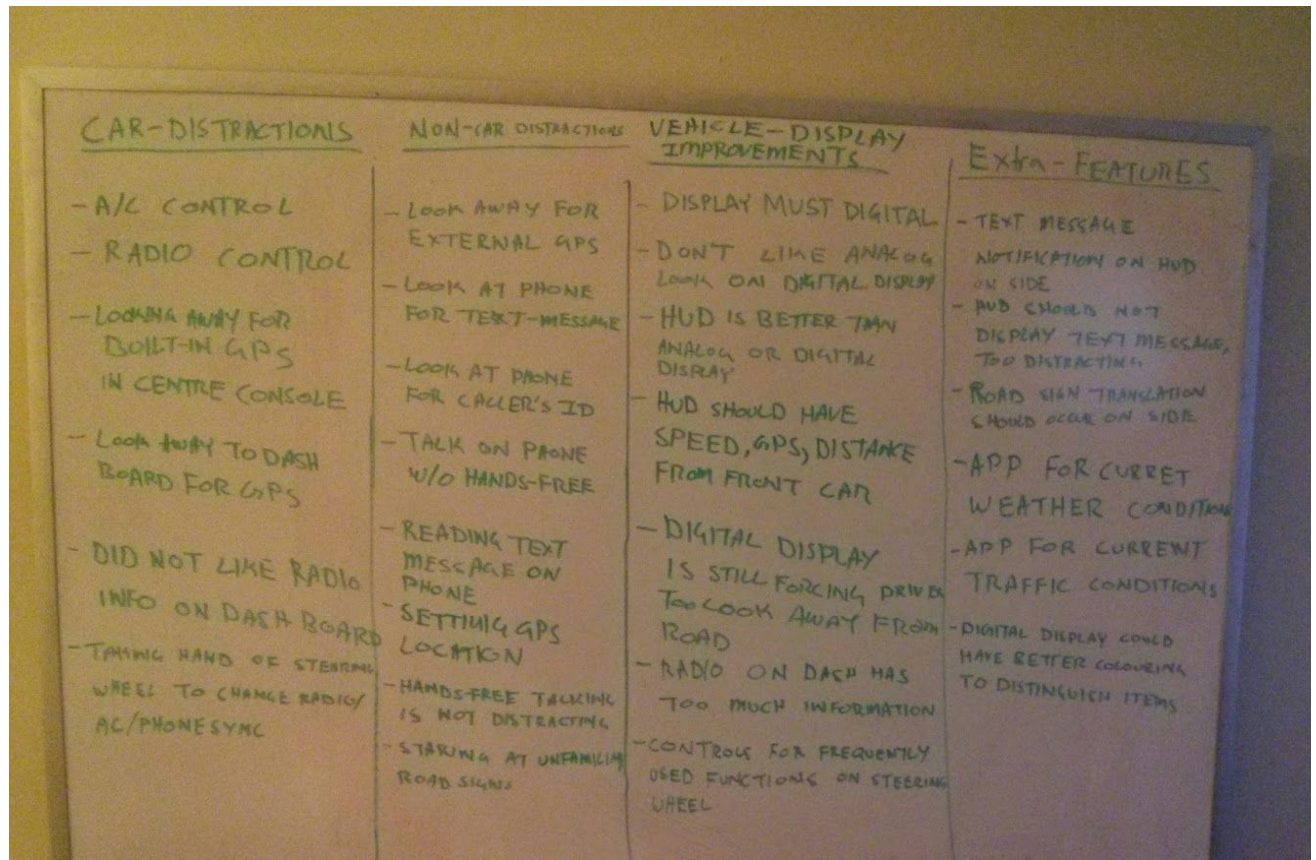 CAR-DISTRACTIONS
- A/C CONTROL
- RADIO CONTROL
- LOOKING AWAY FOR
BUILT-IN GPS
IN CENTRE CONSOLE
- LOOK AWAY TO DASH
BOARD FOR GPS
- DID NOT LIKE RADIO
INFO ON DASH BOARD
- TAKING HAND OF STEARING
WHEEL TO CHANGE RADIO/
AC/PHONESYNC
NON-CAR DISTRACTIONS
- LOOK AWAY FOR
EXTERNAL GPS
- LOOK AT PHONE
FOR TEXT-MESSAGE
- LOOK AT PHONE
FOR CALLER'S ID
- TALK ON PHONE
W/O HANDS-FREE
- READING TEXT
MESSAGE ON
PHONE
- SETTING GPS
LOCATION
- HANDS-FREE TALKING
IS NOT DISTRACTING
- STARING AT UNFAMILIAR
ROAD SIGNS
VEHICLE-DISPLAY
IMPROVEMENTS
- DISPLAY MUST DIGITAL
- DON'T LIKE ANALOG
LOOK ON DIGITAL DISPLAY
- HUD IS BETTER THAN
ANALOG OR DIGITAL
DISPLAY
- HUD SHOULD HAVE
SPEED, GPS, DISTANCE
FROM FRONT CAR
- DIGITAL DISPLAY
IS STILL FORCING DRIVER
TOO LOOK AWAY FROM
ROAD
- RADIO ON DASH HAS
TOO MUCH INFORMATION
- CONTROLS FOR FREQUENTLY
USED FUNCTIONS ON STEERING
WHEEL
Extra-FEATURES
- TEXT MESSAGE
NOTIFICATION ON HUD
ON SIDE
- HUD SHOULD NOT
DISPLAY TEXT MESSAGE,
TOO DISTRACTING
- ROAD SIGN TRANSLATION
SHOULD OCCUR ON SIDE
- APP FOR CURRET
WEATHER CONDITIONS
- APP FOR CURRENT
TRAFFIC CONDITIONS
- DIGITAL DISPLAY COULD
HAVE BETTER COLOURING
TO DISTINGUISH ITEMS